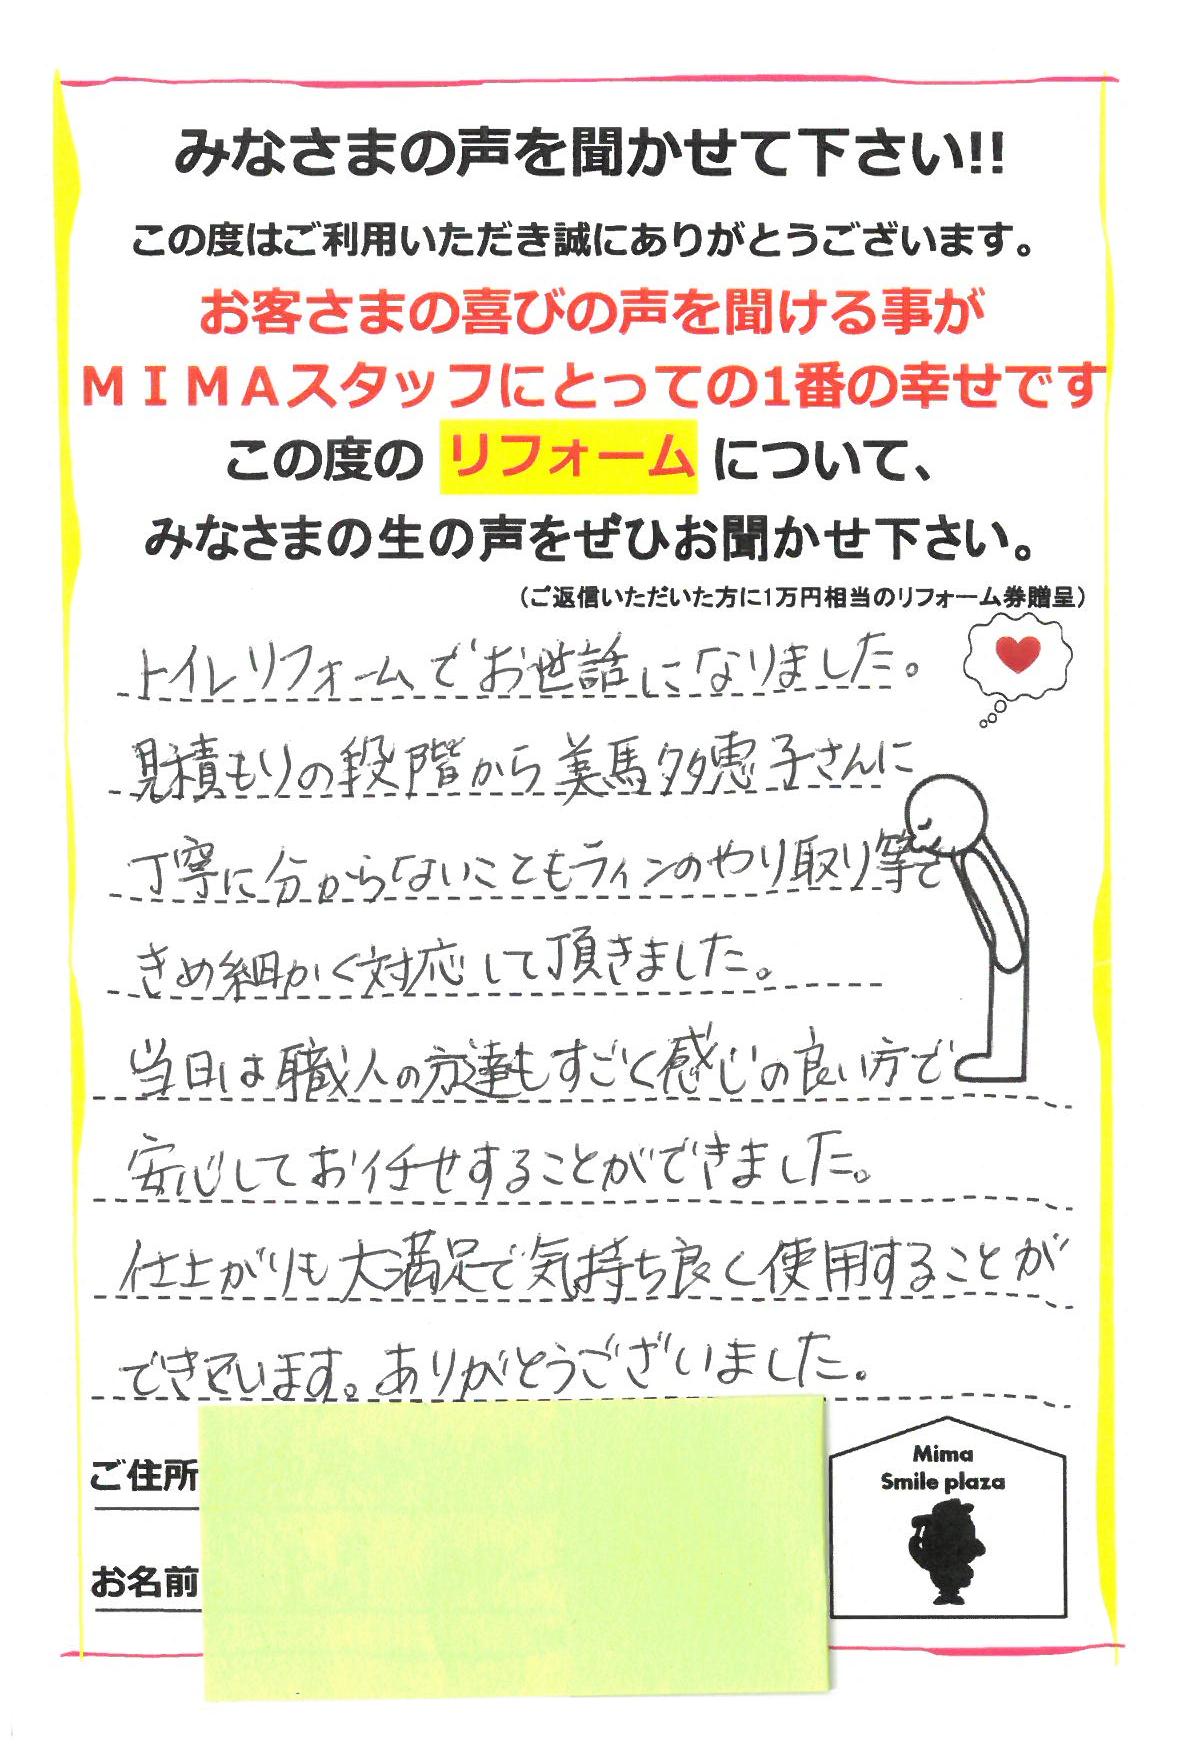 みなさまの声を聞かせて下さい!!
この度はご利用いただき誠にありがとうございます。
お客さまの喜びの声を聞ける事が
ＭＩＭＡスタッフにとっての1番の幸せです
この度の リフォーム について、
みなさまの生の声をぜひお聞かせ下さい。
（ご返信いただいた方に1万円相当のリフォーム券贈呈）
トイレリフォームでお世話になりました。
見積もりの段階から美馬多恵子さんに
丁寧に分からないこともラインのやり取り等で
きめ細かく対応して頂きました。
当日は職人の方達もすごく感じの良い方で
安心してお任せすることができました。
仕上がりも大満足で気持ち良く使用することが
できています。ありがとうございました。
ご住所
お名前
Mima
Smile plaza